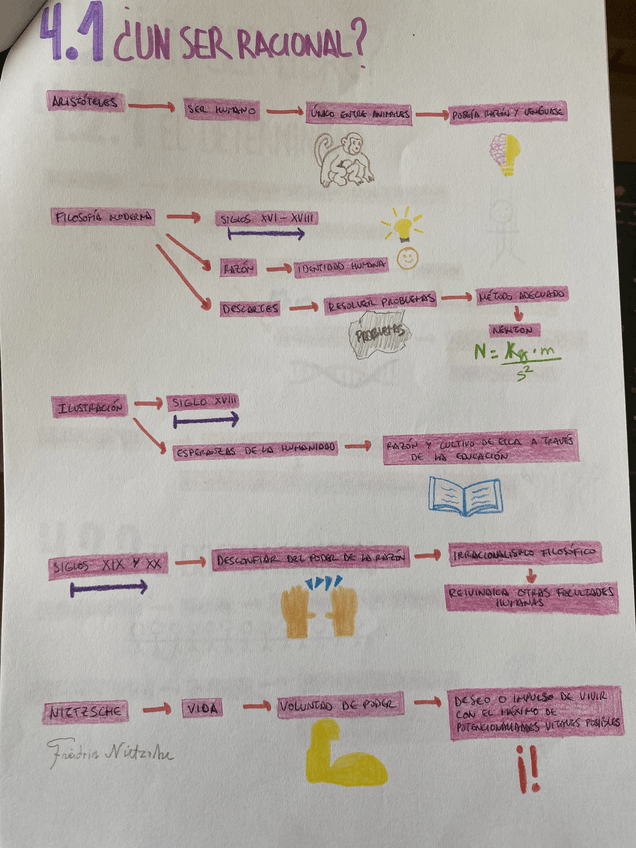 4.1 ¿UN SER RACIONAL?
ARISTÓTELES SER HUMANO ÚNICO ENTRE ANIMALES POSEÍA RAZÓN Y LENGUAJE
FILOSOFÍA MODERNA SIGLOS XVI - XVIII
RAZÓN IDENTIDAD HUMANA
DESCARTES RESOLVER PROBLEMAS MÉTODO ADECUADO
PROBLEMAS
NEWTON
N = Kg · m
s²
ILUSTRACIÓN SIGLO XVIII
ESPERANZAS DE LA HUMANIDAD RAZÓN Y CULTIVO DE ELLA A TRAVÉS
DE LA EDUCACIÓN
SIGLOS XIX Y XX DESCONFIAR DEL PODER DE LA RAZÓN IRRACIONALISMO FILOSÓFICO
REIVINDICA OTRAS FACULTADES
HUMANAS
NIETZSCHE VIDA VOLUNTAD DE PODER DESEO O IMPULSO DE VIVIR
CON EL MÁXIMO DE
POTENCIONALIDADES VITALES POSIBLES
¡!